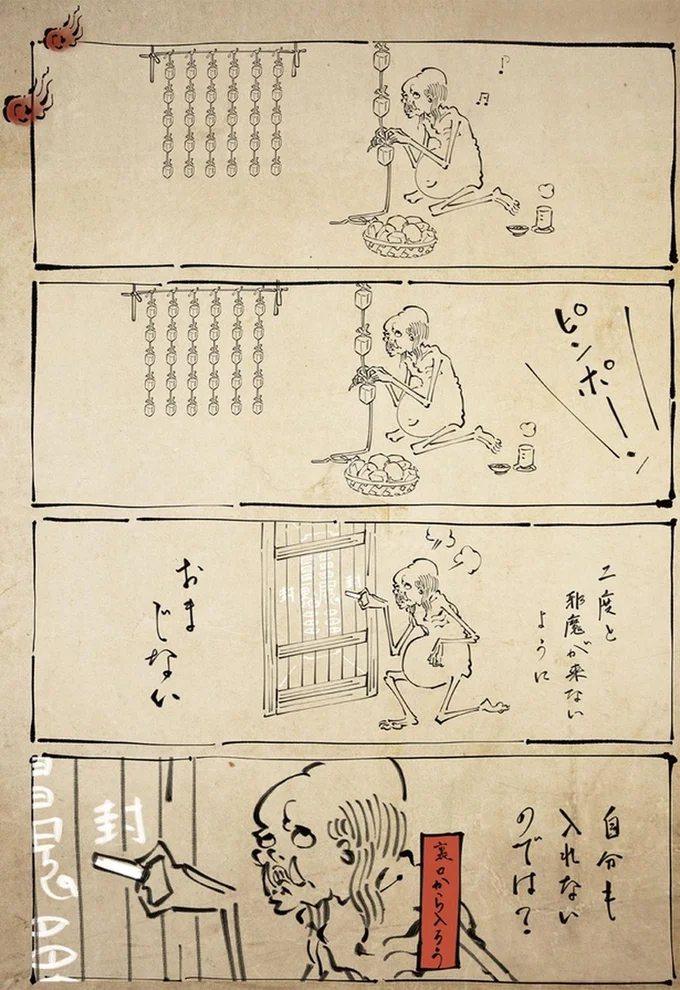 ピンポーン
二度と
邪魔が来ない
ように
おまじない
封
自分も
入れない
のでは？
封
裏口から入ろう